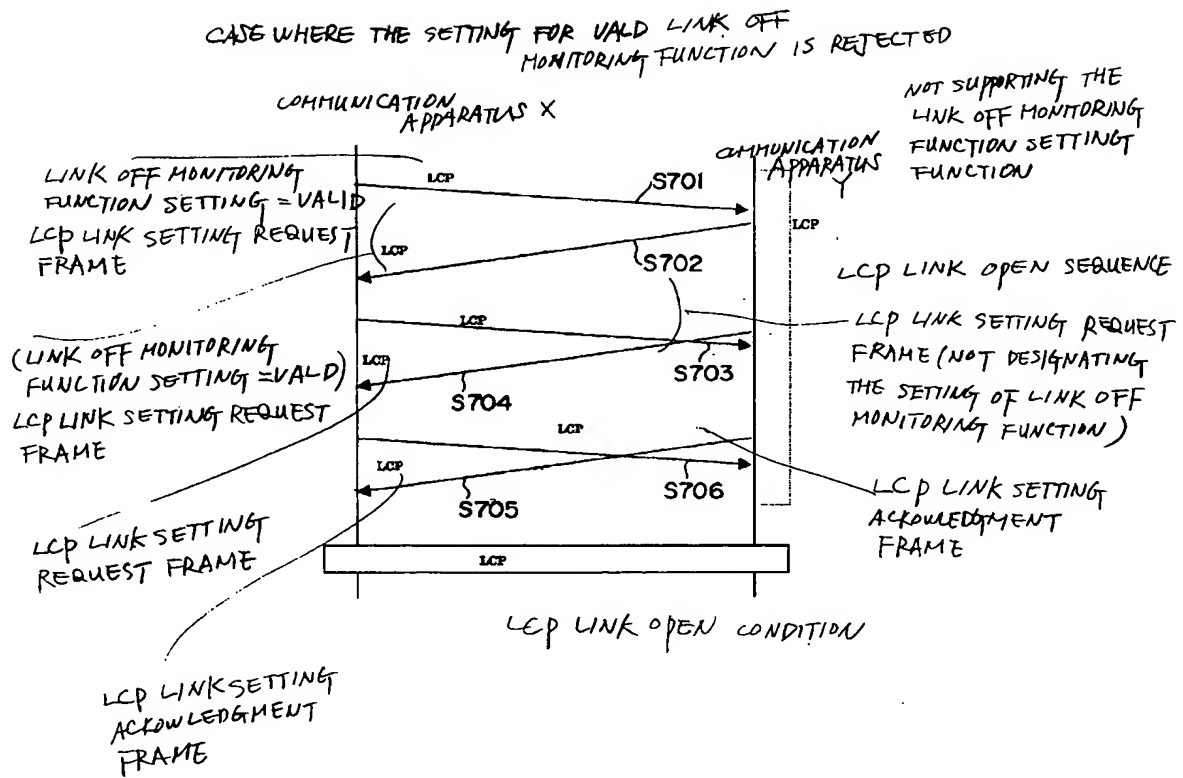 CASE WHERE THE SETTING FOR VALD LINK OFF
MONITORING FUNCTION IS REJECTED
COMMUNICATION
APPARATUS X
NOT SUPPORTING THE
LINK OFF MONITORING
FUNCTION SETTING
FUNCTION
COMMUNICATION
APPARATUS
Y
LINK OFF MONITORING
FUNCTION SETTING = VALID
LCP LINK SETTING REQUEST
FRAME
LCP
S701
LCP
LCP
S702
LCP LINK OPEN SEQUENCE
LCP
S703
LCP LINK SETTING REQUEST
FRAME (NOT DESIGNATING
THE SETTING OF LINK OFF
MONITORING FUNCTION)
(LINK OFF MONITORING
FUNCTION SETTING = VALD)
LCP LINK SETTING REQUEST
FRAME
LCP
S704
LCP
S706
LCP
S705
LCP LINK SETTING
ACKOWLEDGMENT
FRAME
LCP LINK SETTING
REQUEST FRAME
LCP
LCP LINK OPEN CONDITION
LCP LINK SETTING
ACKOWLEDGMENT
FRAME